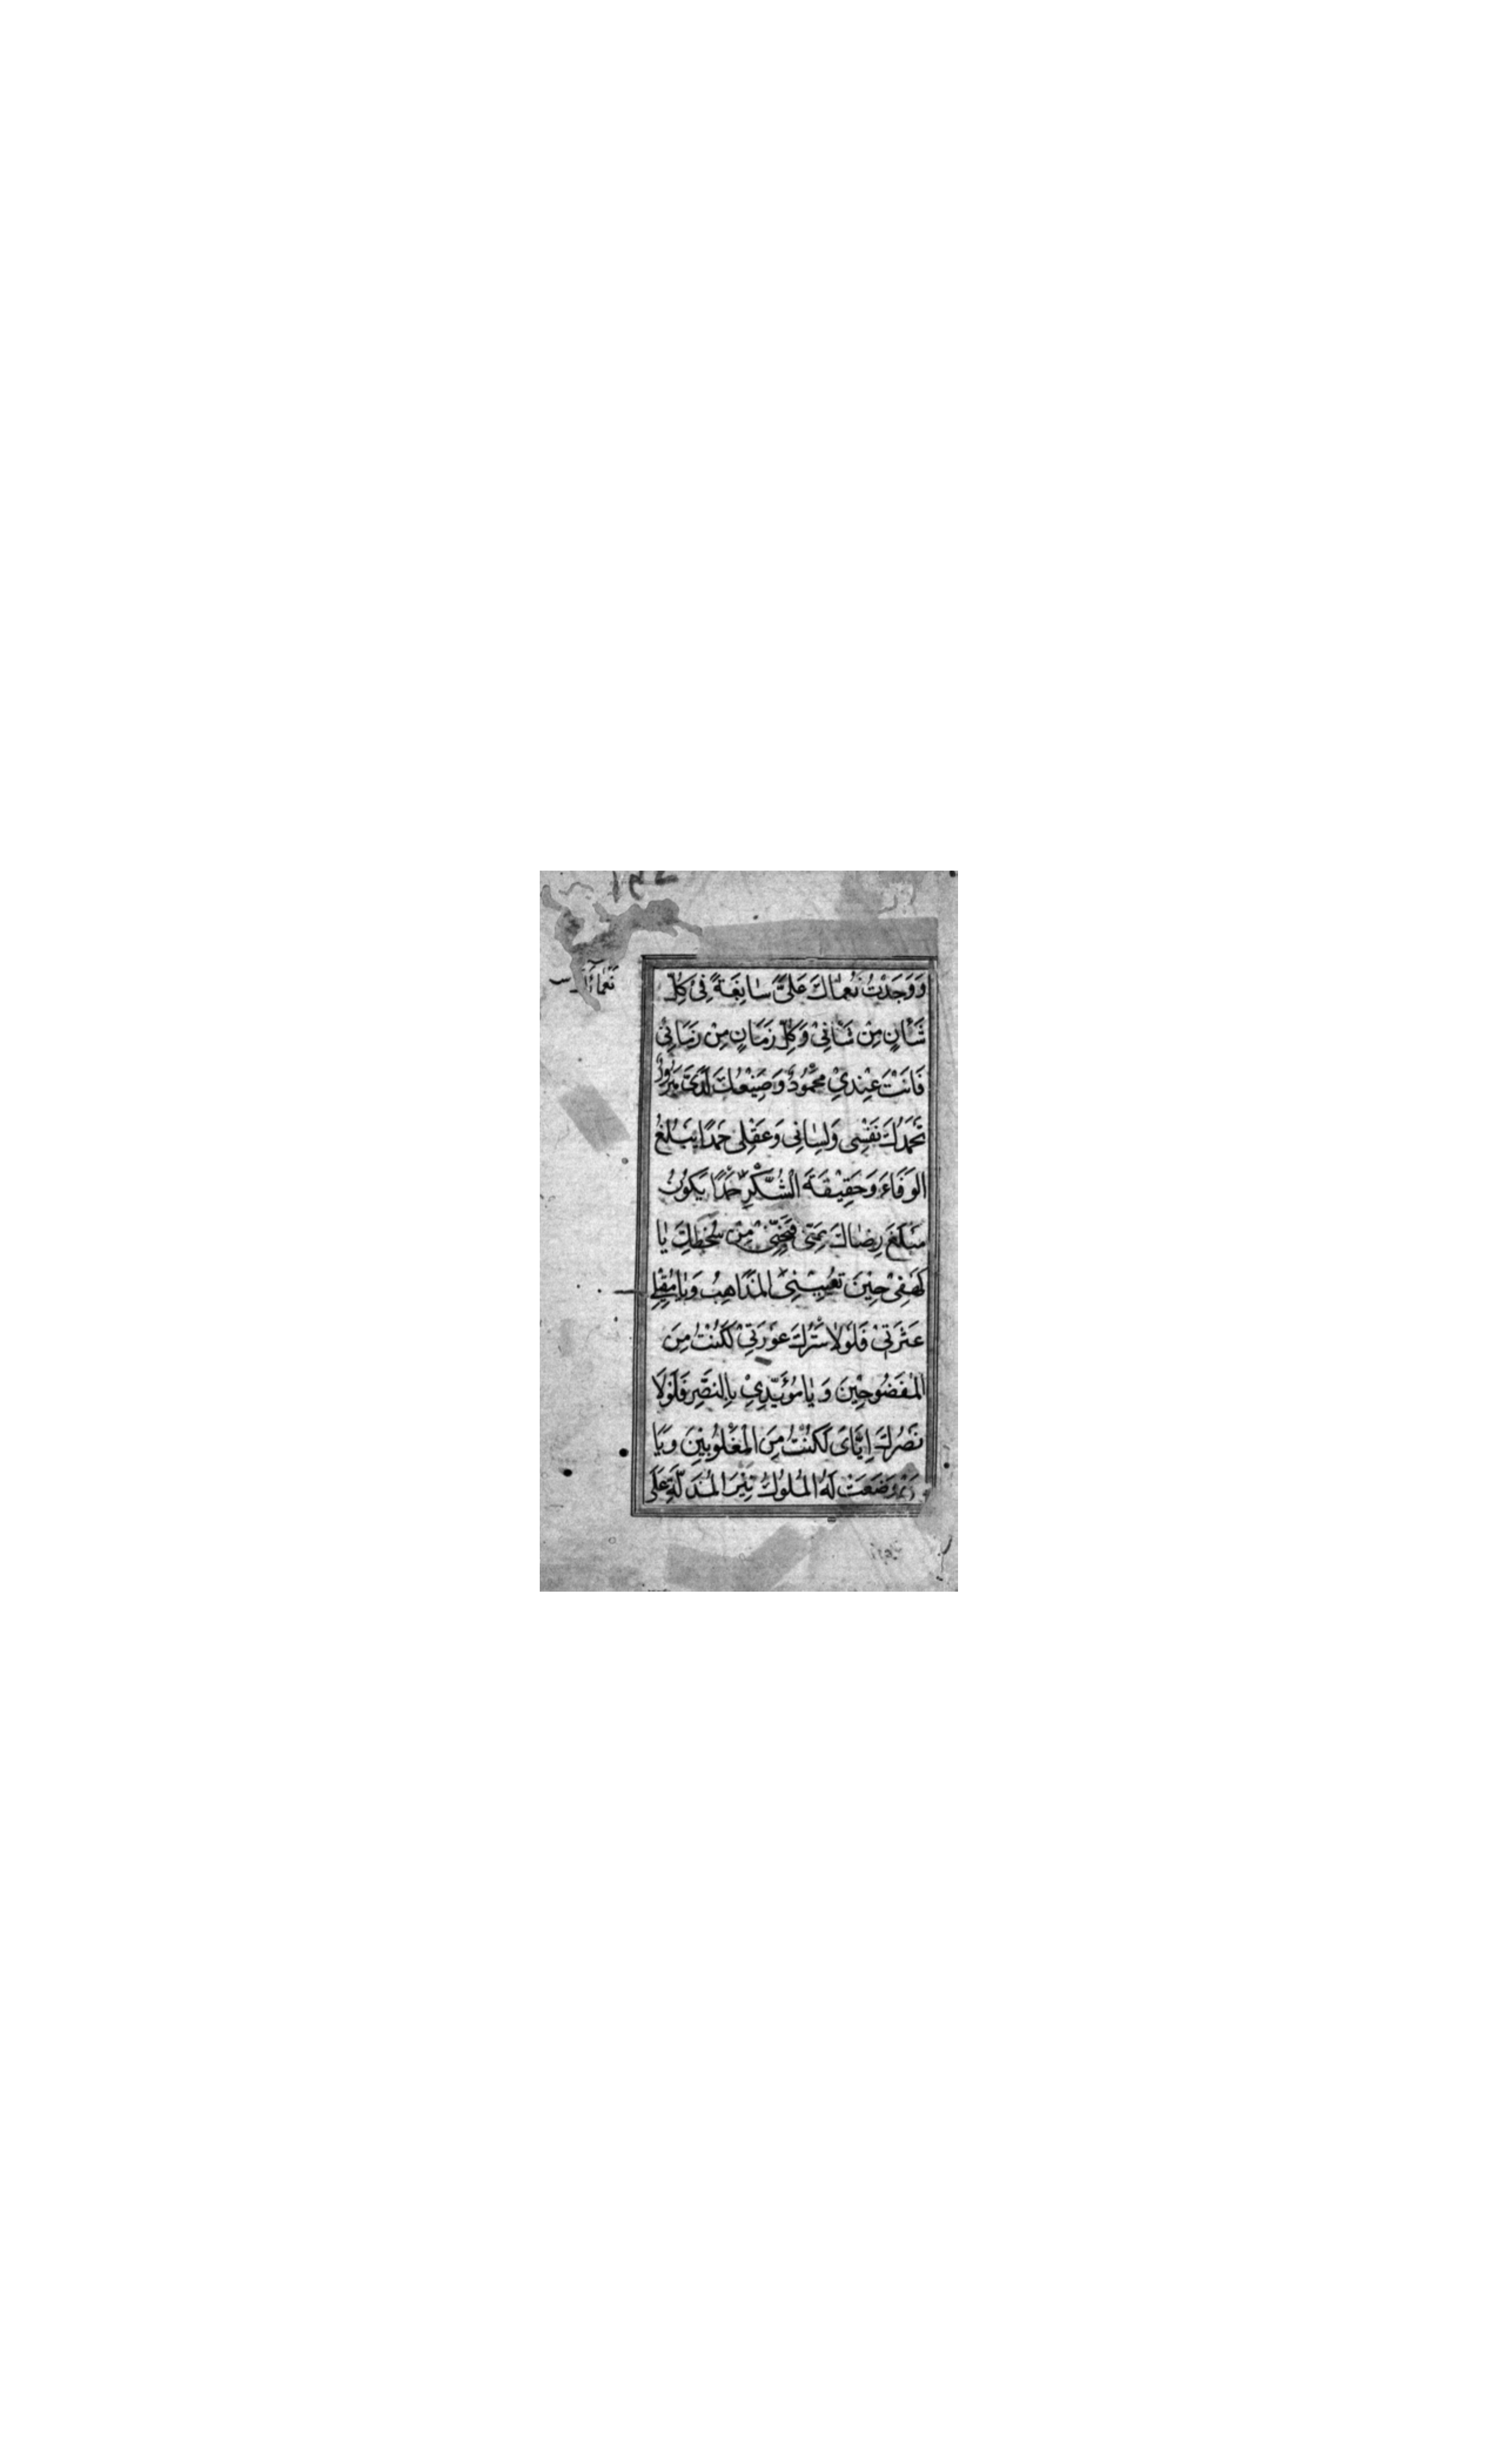 نَعْمَاۤءَكَ س
وَوَجَدْتُ نَعْمَاكَ عَلَيَّ سَابِغَةً فِي كُلِّ
شَأْنٍ مِنْ شَأْنِي وَكُلِّ زَمَانٍ مِنْ زَمَانِي
فَانْتَ عِنْدِيْ مَحْمُودٌ وَصَنِيْعُكَ لَدَيَّ مَبْرُورٌ
تَحْمَدُكَ نَفْسِي وَلِسَانِي وَعَقْلِي حَمْدًا يَبْلُغُ
الوَفَاءَ وَحَقِيْقَةَ الشُّكْرِ حَمْدًا يَكُونُ
مَبْلَغَ رِضَاكَ عَنِّي فَنَجِّنِيْ مِنْ سَخَطِكَ يَا
كَهْفِيْ حِيْنَ تُعْيِيْنِي المَذَاهِبُ وَيَا مُقِيْلِي
عَثْرَتِيْ فَلَوْلَا سَتْرُكَ عَوْرَتِيْ لَكُنْتُ مِنَ
المَفْضُوحِيْنَ وَيَا مُؤَيِّدِيْ بِالنَّصْرِ فَلَوْلَا
نَصْرُكَ اِيَّايَ لَكُنْتُ مِنَ المَغْلُوبِيْنَ وَيَا
وَضَعَتْ لَهُ المُلُوكُ نِيْرَ المَذَلَّةِ عَلَى